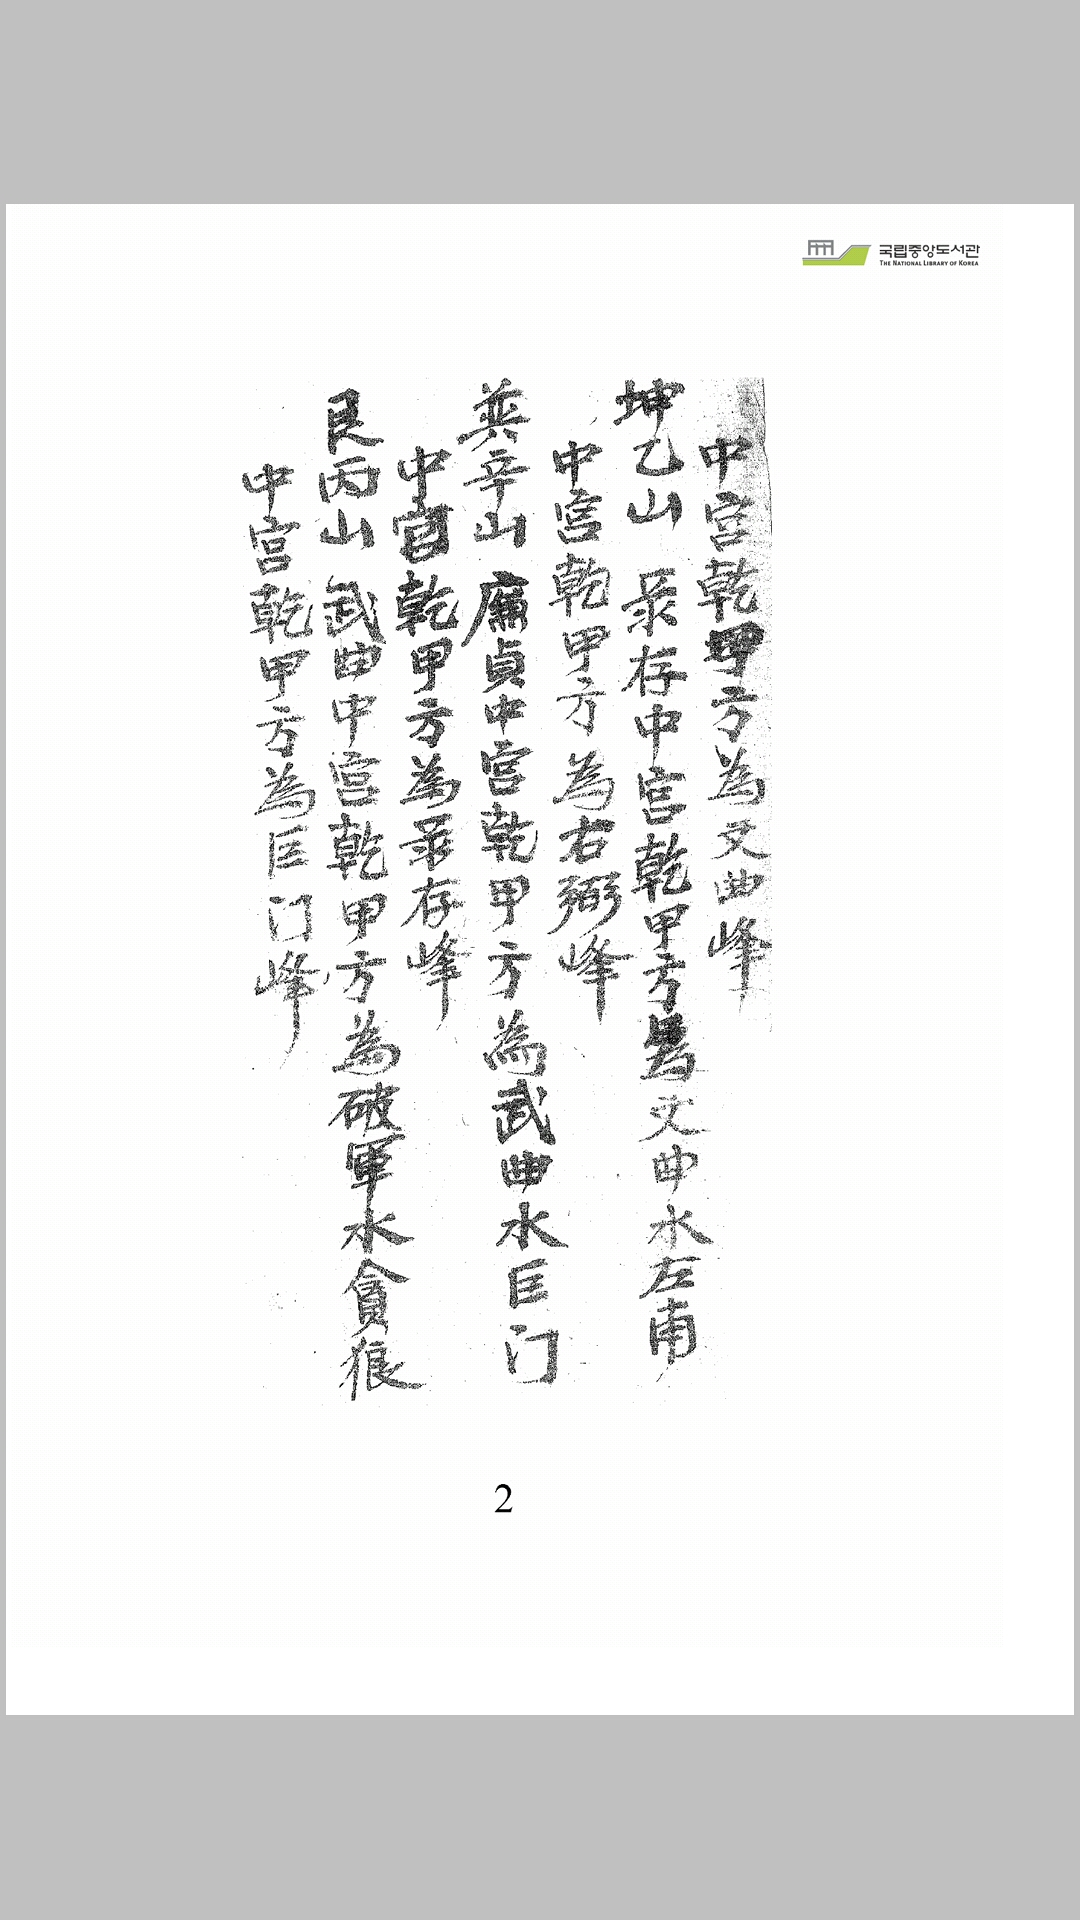 국립중앙도서관
THE NATIONAL LIBRARY OF KOREA
中宮乾甲方為文曲峰
坤乙山 彔存中宮乾甲方為文曲水左甫
中宮乾甲方為右弼峰
巽辛山 廉貞中宮乾甲方為武曲水巨门
中宮乾甲方為彔存峰
艮丙山 武曲中宮乾甲方為破軍水貪狼
中宮乾甲方為巨门峰
2